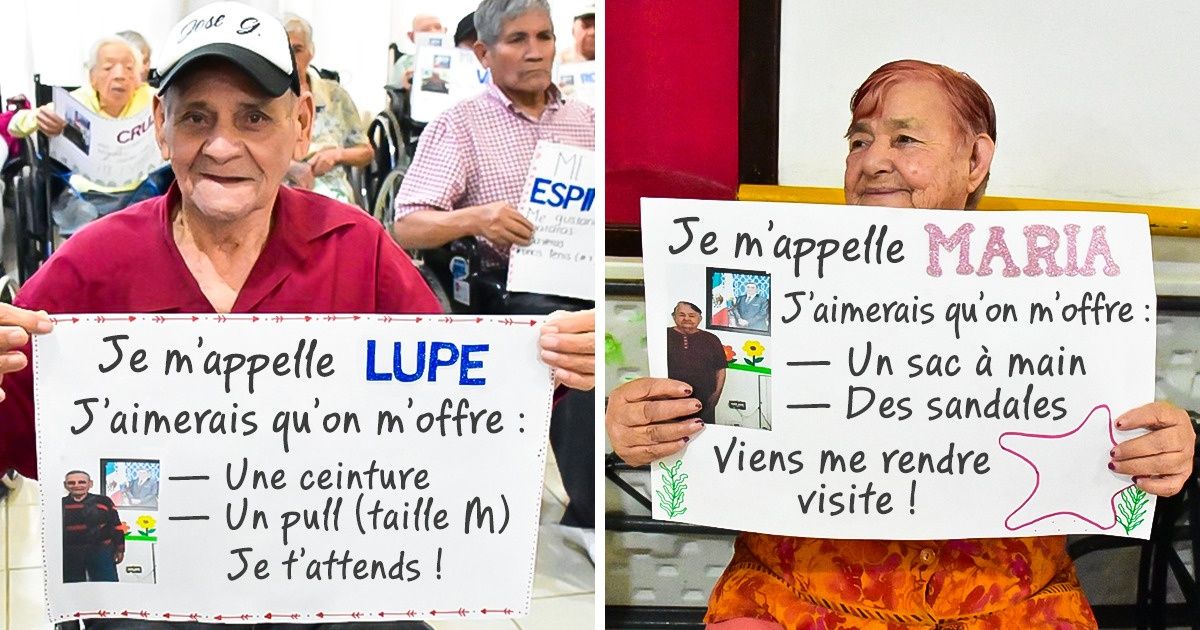 José G.
CRU
MI
ESPI
Me gustaría
Je m'appelle LUPE
J'aimerais qu'on m'offre :
— Une ceinture
— Un pull (taille M)
Je t'attends !
Je m'appelle MARIA
J'aimerais qu'on m'offre :
— Un sac à main
— Des sandales
Viens me rendre
visite !